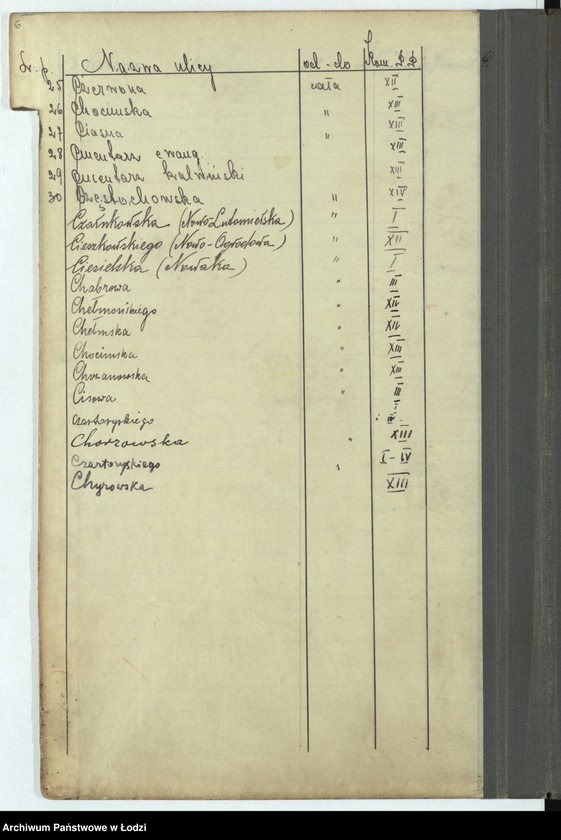 6
Nazwa ulicy od - do Kom. P.P.
25 Czerwona cała XII
26 Chocimska " XIII
27 Ciasna " XIII
28 Cmentarz ewang. XIII
29 Cmentarz kalwiński XIII
30 Częstochowska " XIV
Czarnkowska (Nowo-Lutomierska) " I
Cieszkowskiego (Nowo-Ogrodowa) " XII
Ciesielska (Nowaka) " I
Chabrowa " III
Chełmońskiego " XIV
Chełmska " XIV
Chocimska " XIII
Chrzanowska " XIII
Cisowa " III
Czartoryskiego
Chorzowska " XIII
Czartoryskiego " I-IV
Chyrowska XIII
Archiwum Państwowe w Łodzi